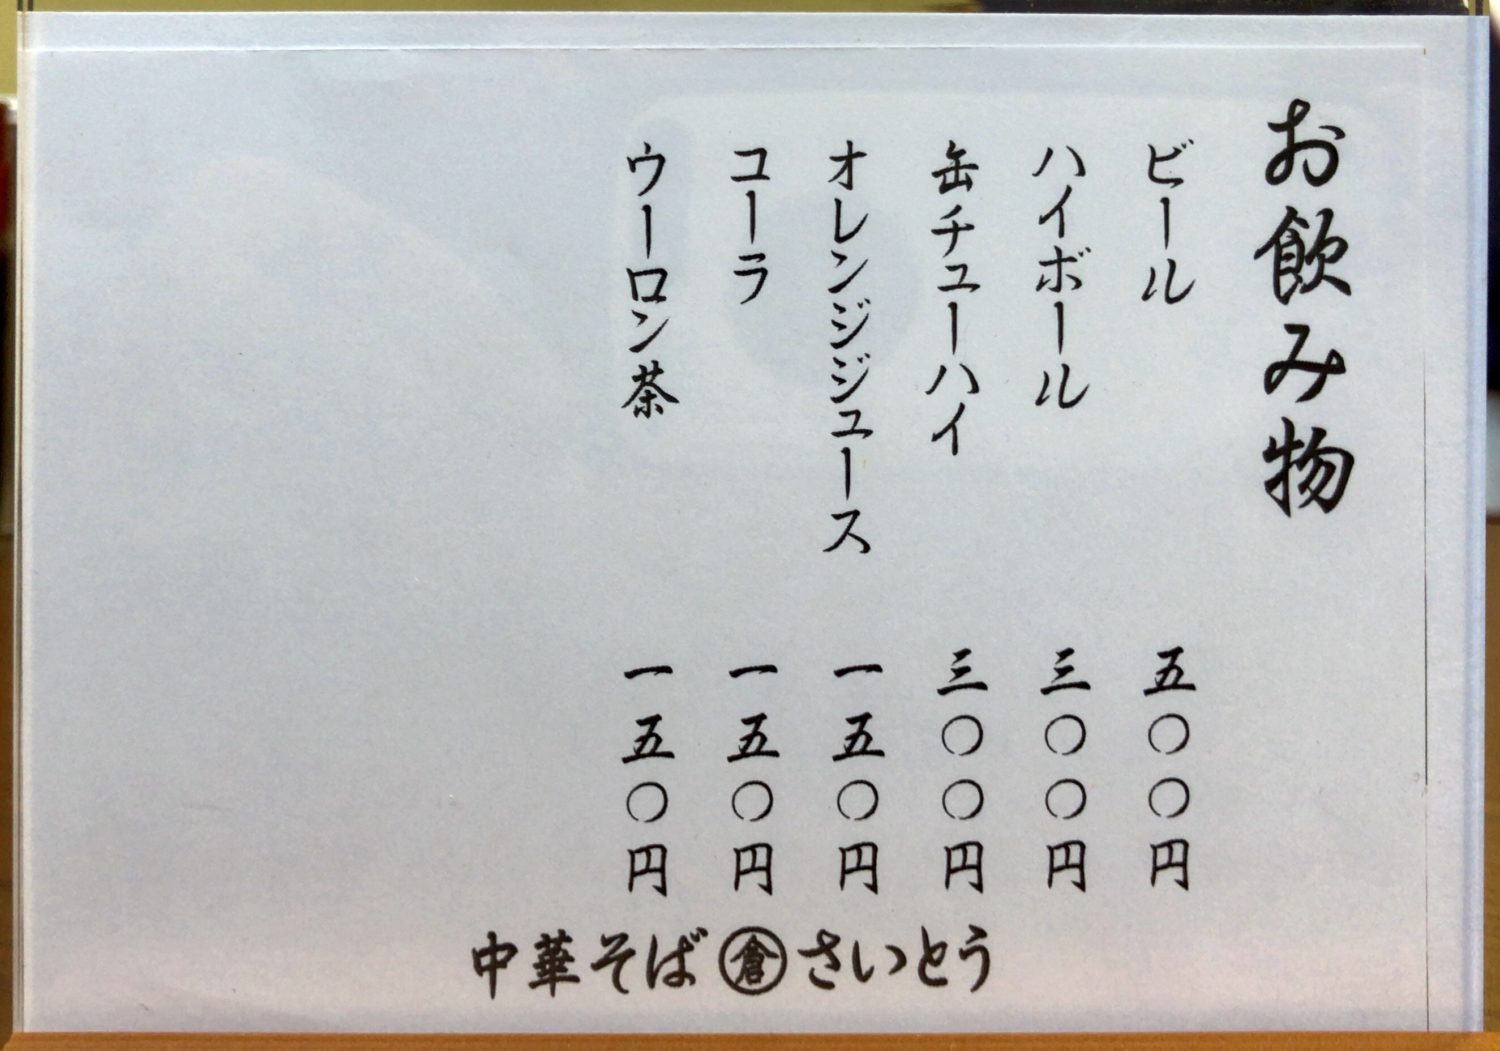 お飲み物
ビール 五〇〇円
ハイボール 三〇〇円
缶チューハイ 三〇〇円
オレンジジュース 一五〇円
コーラ 一五〇円
ウーロン茶 一五〇円
中華そば 倉 さいとう